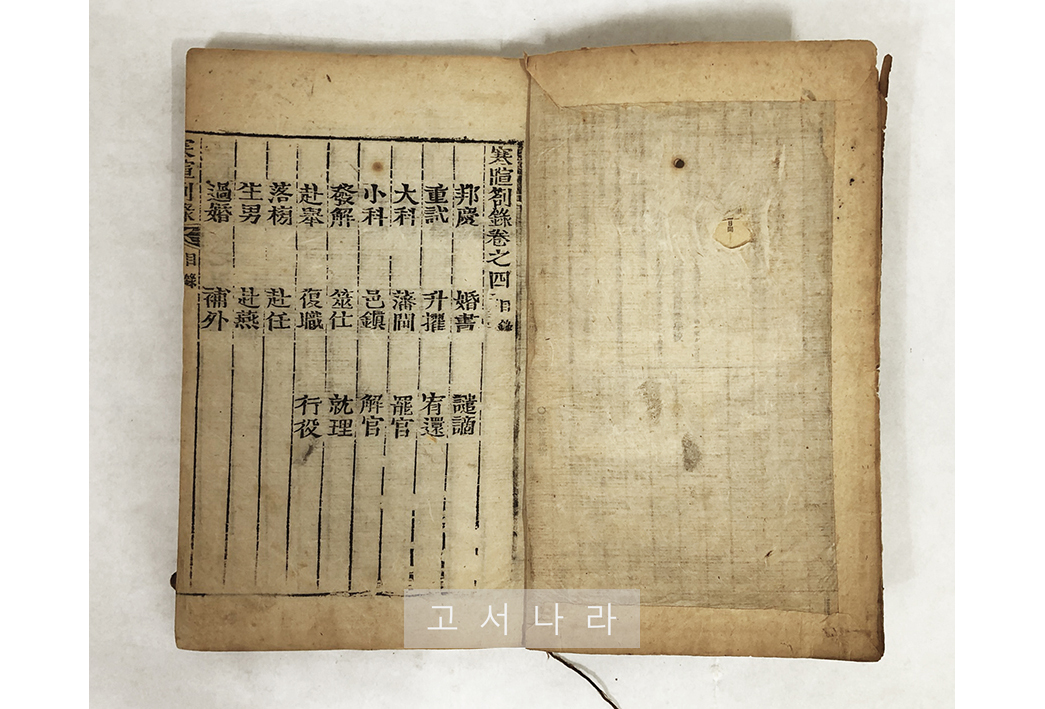 寒暄劄錄卷之四 目錄
邦慶 婚書 譴謫
重試 升擢 宥還
大科 藩閫 罷官
小科 邑鎭 解官
發解 筮仕 就理
赴擧 復職 行役
落榜 赴任
生男 赴燕
過婚 補外
寒暄劄錄 目錄
고서나라